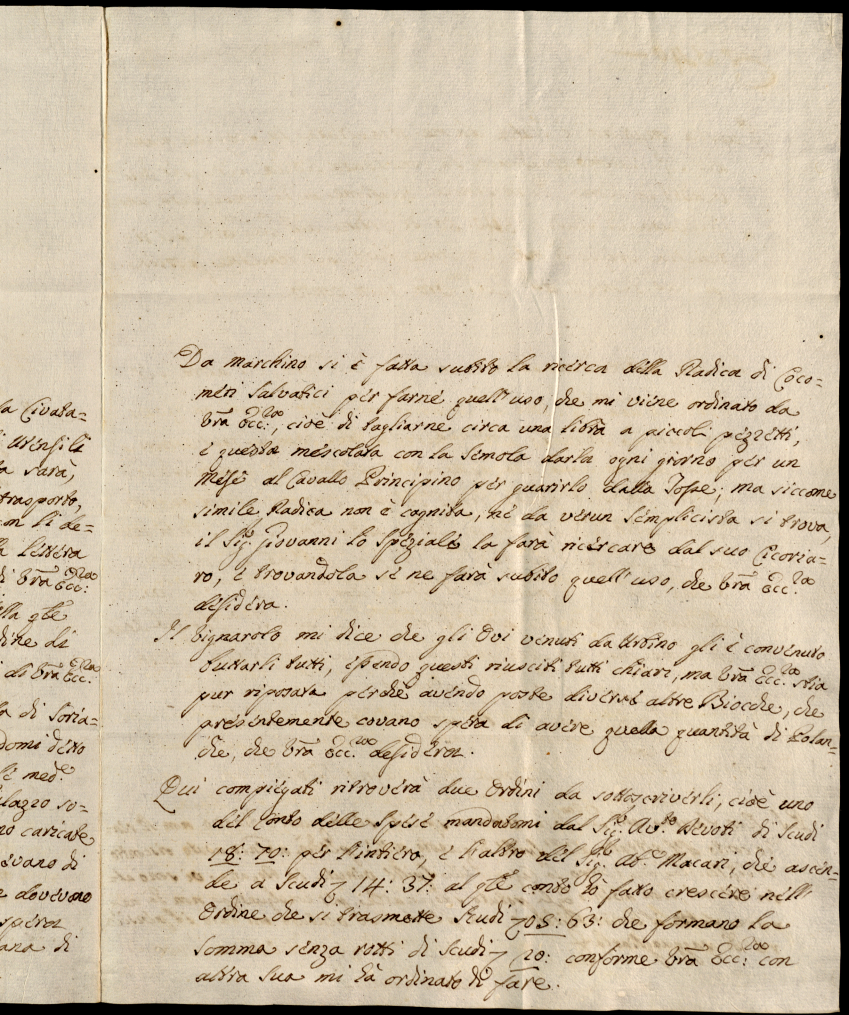 la Civata=
i Utensili
a sarà,
trasporto,
on li de=
la lettera
di Vra Ecc:za
lla qle
dine di
i di Vra Ecc:za
la di Soria=
domi detto
le med.e
alazzo so=
no caricate
evano di
e dovevano
sperar
ana di
Da marchino si è fatta subito la ricerca della Radica di Coco=
meri Salvatici per farne quell'uso, che mi viene ordinato da
Vra Ecc:za, cioè di tagliarne circa una libra a piccoli pezzetti,
e questa mescolata con la Semola darla ogni giorno per un
Mese al Cavallo Principino per guarirlo dalla Tosse; ma siccome
simile Radica non è cognita, nè da verun Semplicista si trova,
il Sig.r Giovanni lo Speziale la farà ricercare dal suo Cicoria=
ro, e trovandola se ne farà subito quell'uso, che Vra Ecc:za
desidera.
Il Vignarolo mi dice che gli Ovi venuti da Urbino gli è convenuto
buttarli tutti, essendo questi riusciti tutti chiari, ma Vra Ecc:za stia
pur riposata perchè avendo poste diverse altre Biocche, che
presentemente covano spera di avere quella quantità di Polan=
che, che Vra Ecc:za desidera.
Qui compiegati ritroverà due Ordini da sottoscriverli, cioè uno
del Conto delle Spese mandatomi dal Sig.r Av.to Devoti di Scudi
18: 70: per l'intiero, e l'altro del Sig.r Ab.e Macari, che ascen=
de a Scudi 14: 37: al qle conto hò fatto crescere nell'
Ordine che si trasmette Scudi 05: 63: che formano la
somma senza rotti di Scudi 20: conforme Vra Ecc:za con
altra Sua mi hà ordinato di fare.